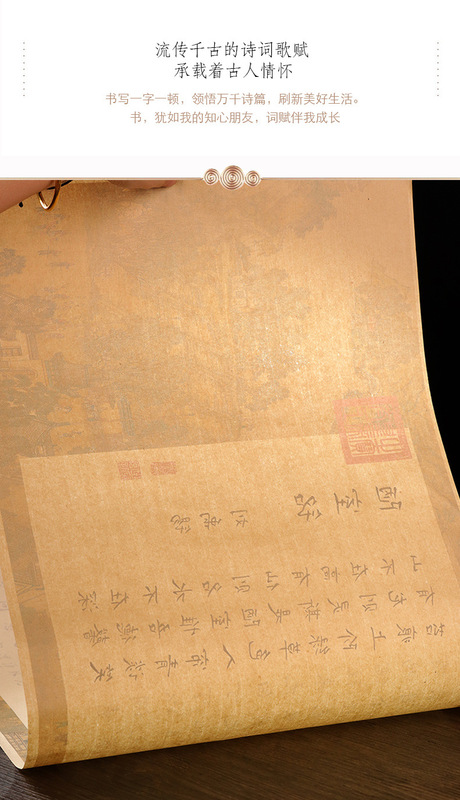 流传千古的诗词歌赋
承载着古人情怀
书写一字一顿，领悟万千诗篇，刷新美好生活。
书，犹如我的知心朋友，词赋伴我成长
陋室铭
刘禹锡
山不在高有仙则名水不在深
有龙则灵斯是陋室惟吾德馨
苔痕上阶绿草色入帘青谈笑